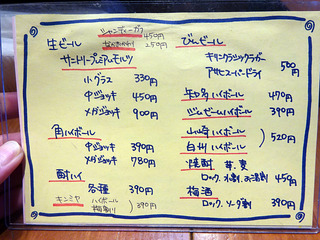 シャンディーガフ 450円
生ビール
250円
サントリープレミアムモルツ
小グラス 330円
中ジョッキ 450円
メガジョッキ 900円
角ハイボール
中ジョッキ 390円
メガジョッキ 780円
酎ハイ
各種 390円
キンミヤ ハイボール
梅割り 390円
びんビール
キリンクラシックラガー
アサヒスーパードライ 500円
ハイボール 470円
ジムビームハイボール 390円
山崎 ハイボール
白州 ハイボール 520円
焼酎 芋、麦
ロック、水割、お湯割 450円
梅酒
ロック、ソーダ割 390円